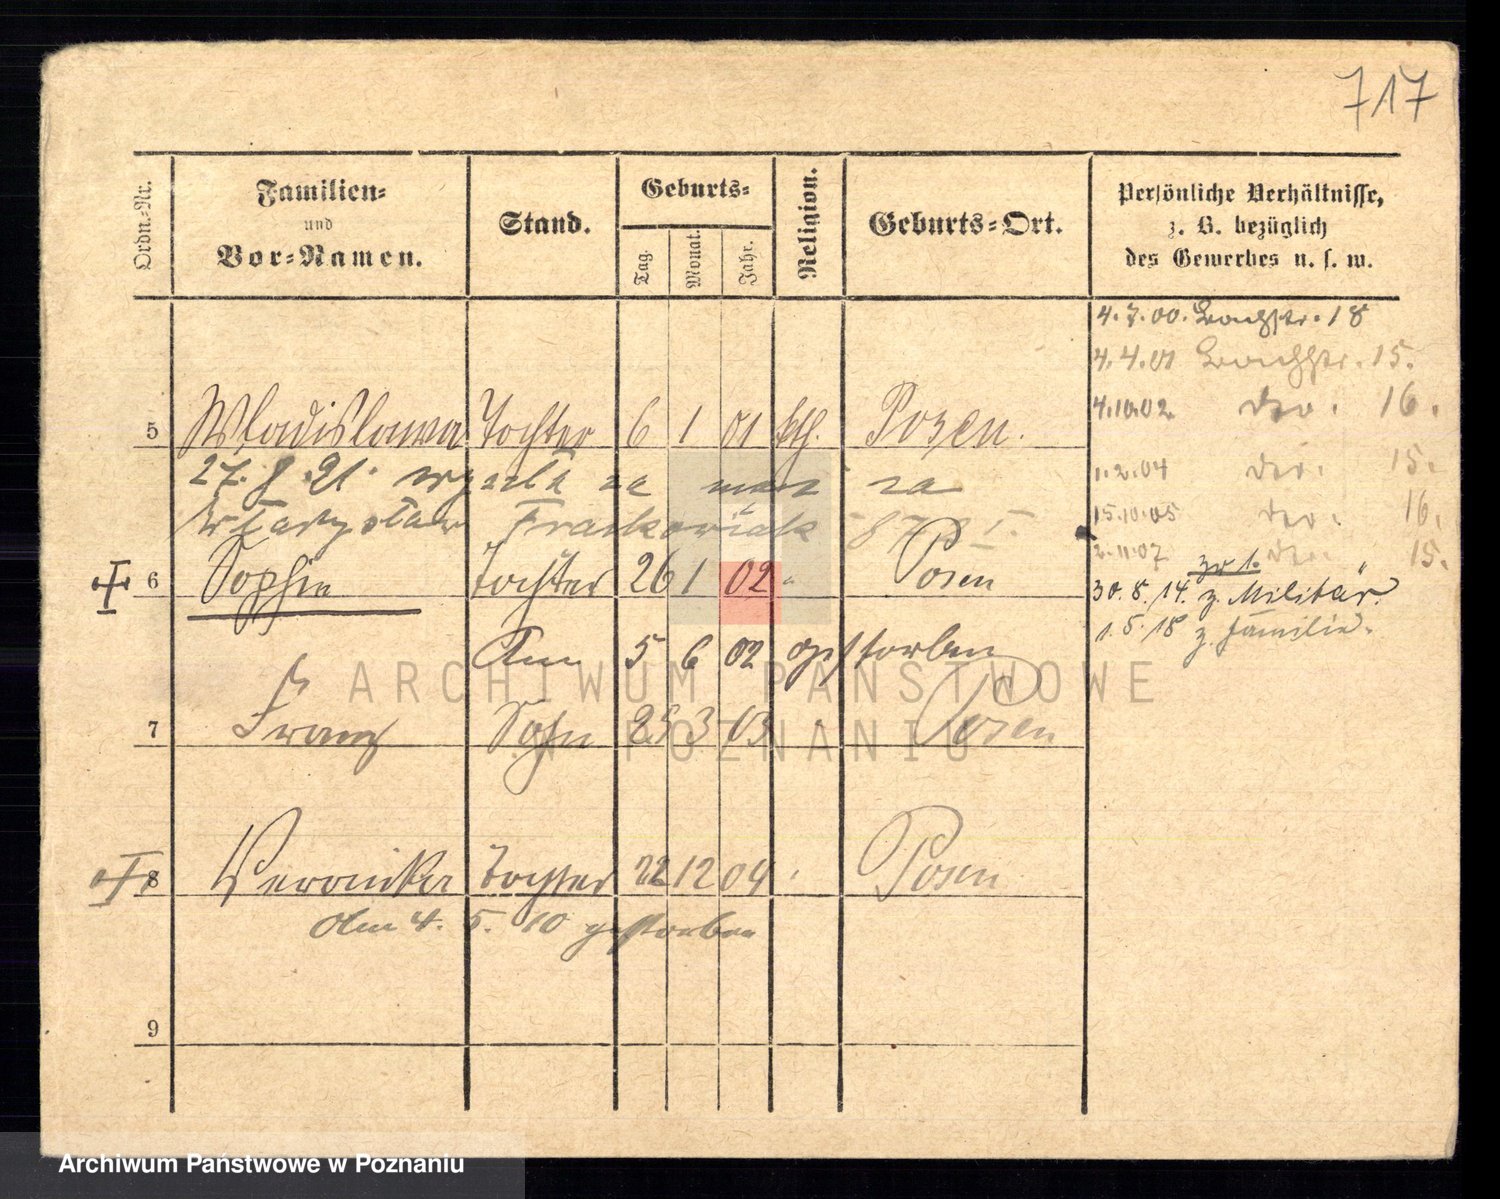 717
Ordn.-Nr.
Familien-
und
Vor-Namen.
Stand.
Geburts-
Tag.
Monat.
Jahr.
Religion.
Geburts-Ort.
Persönliche Verhältnisse,
z. B. bezüglich
des Gewerbes u. s. w.
4.7.00. Bachstr. 18
4.4.01 Bachstr. 15.
4.10.02. 16.
1.2.04 15.
15.10.05 16.
2.11.07 15.
zu 1.
30.8./14. z. Militär.
1.5./18 z. Familie.
5 Wladislawa Tochter 6 1 01 kth. Posen.
27. 8. 21. wyszła za mąż za
Frackowiak
6 Sophie Tochter 26 1 02 " Posen
Am 5 6 02 gestorben
7 Franz Sohn 25 3 03 Posen
8 Veronika Tochter 22 12 04 Posen
Am 4. 5. 10 gestorben
9
ARCHIWUM PAŃSTWOWE
W POZNANIU
Archiwum Państwowe w Poznaniu